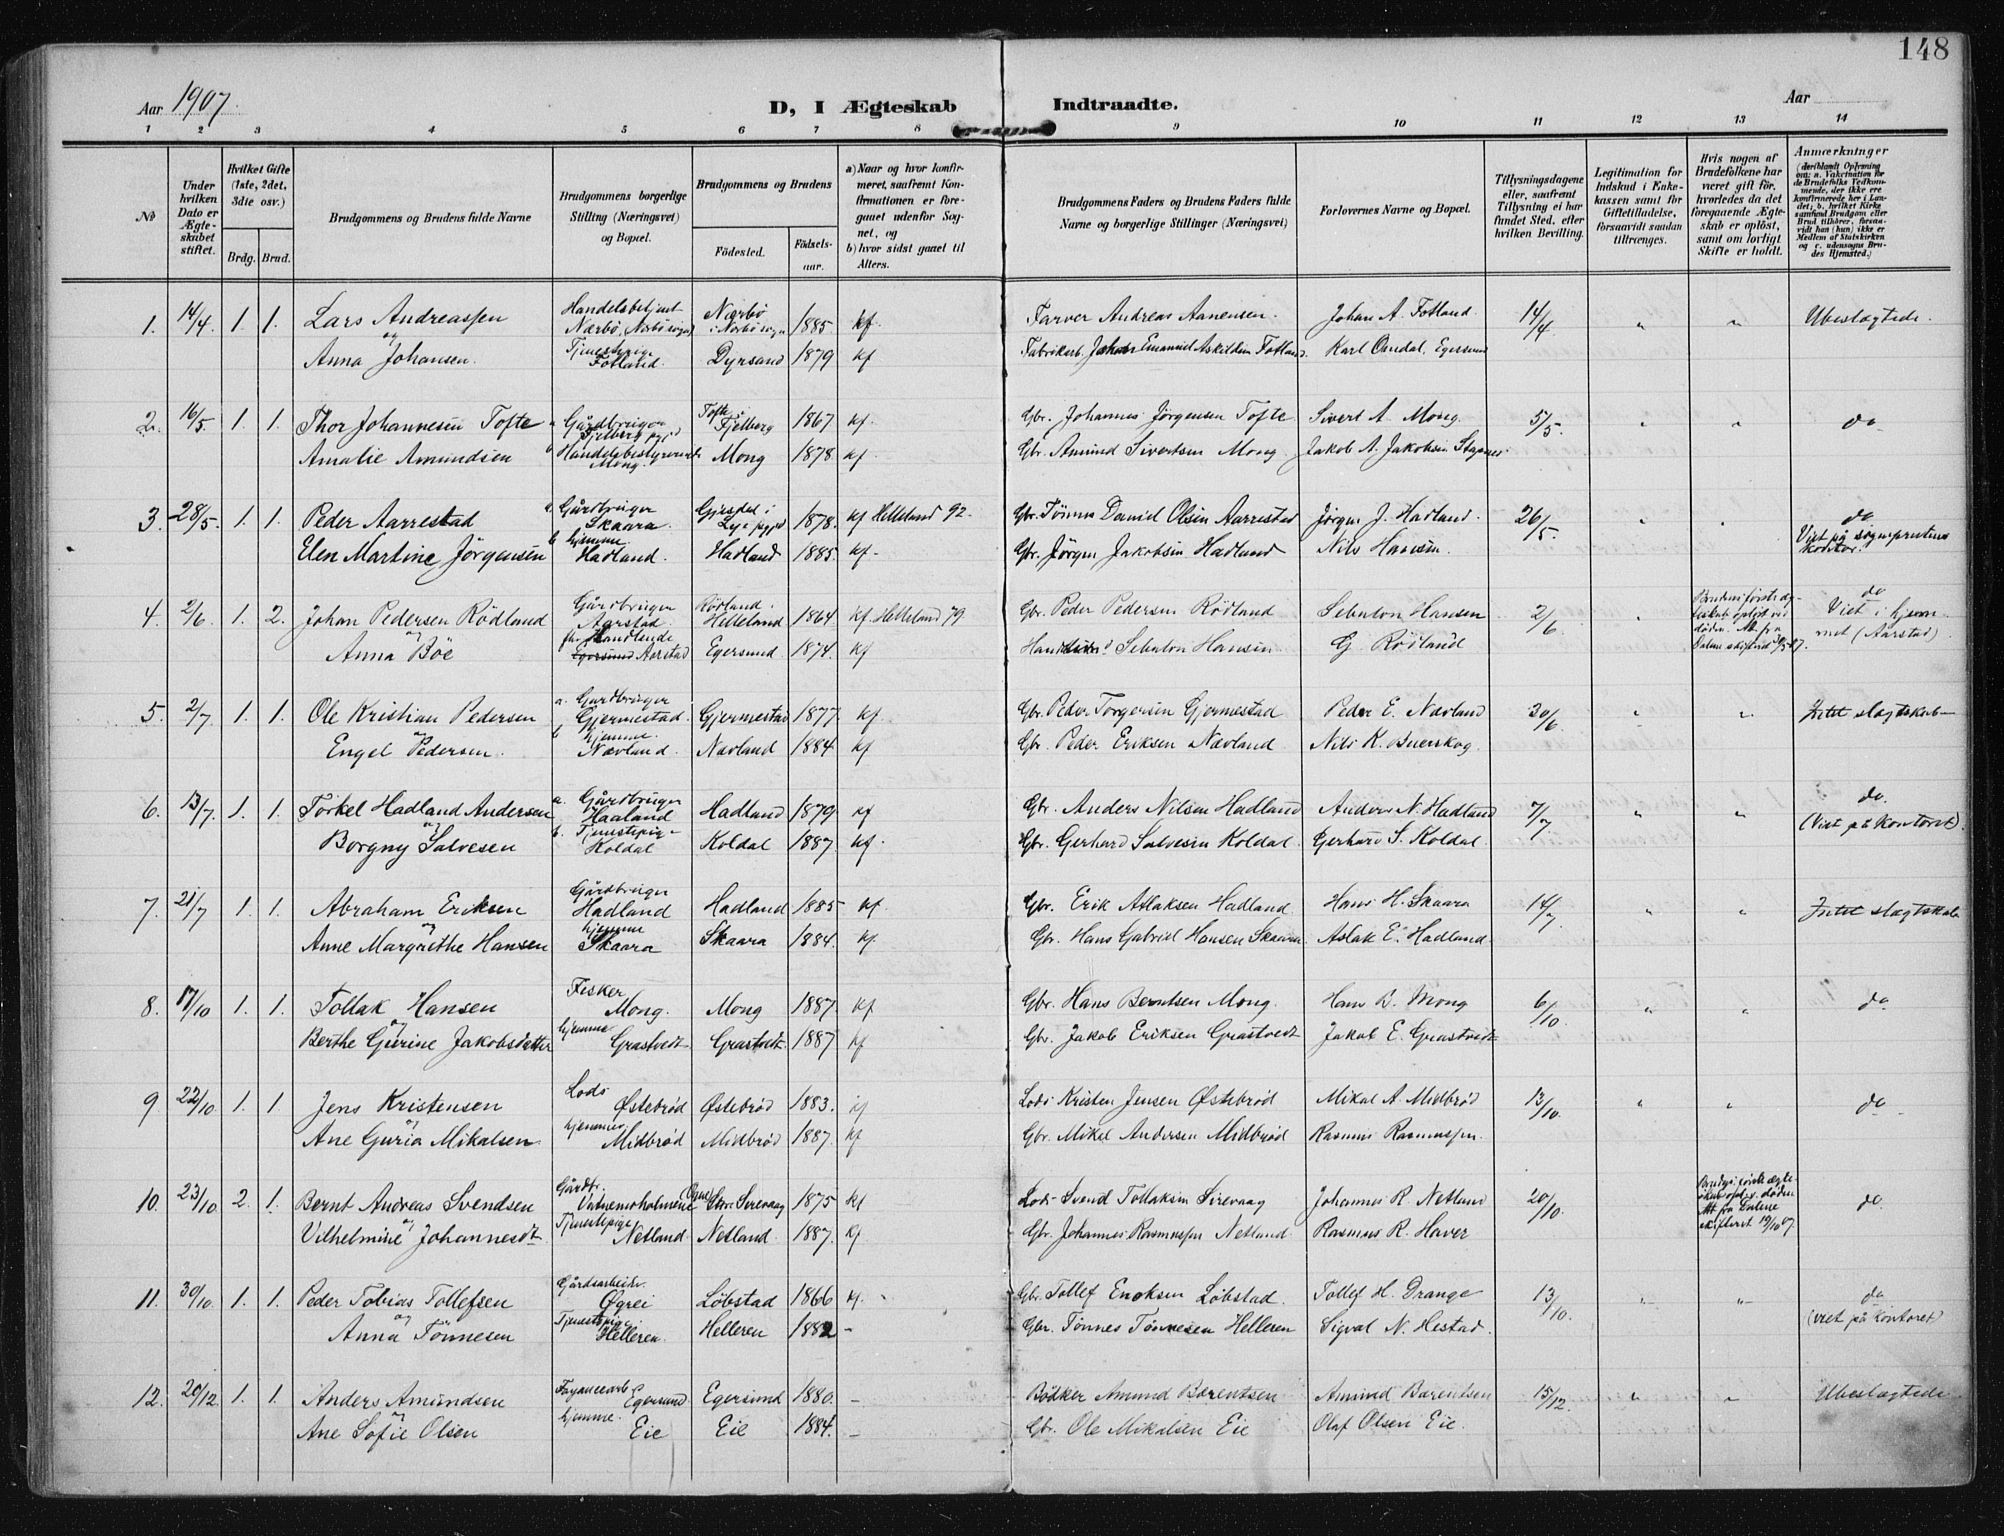 148
Aar 1907. D, I Ægteskab Indtraadte. Aar
1 2 3 4 5 6 7 8 9 10 11 12 13 14
No
Under hvilken Dato er Ægteskabet stiftet.
Hvilket Gifte (1ste, 2det, 3die osv.)
Brdg. Brud.
Brudgommens og Brudens fulde Navne
Brudgommens borgerlige Stilling (Næringsvei) og Bopæl.
Brudgommens og Brudens
Födested. Födselsaar.
a) Naar og hvor konfirmeret, saafremt Konfirmationen er foregaaet udenfor Sognet, og
b) hvor sidst gaaet til Alters.
Brudgommens Faders og Brudens Faders fulde Navne og borgerlige Stillinger (Næringsvei)
Forlovernes Navne og Bopæl.
Tillysningsdagene eller, saafremt Tillysning ei har fundet Sted, efter hvilken Bevilling.
Legitimation for Indskud i Enkekassen samt for Giftetilladelse, forsaavidt saadan tiltrænges.
Hvis nogen af Brudefolkene har været gift før, hvorledes da det foregaaende Ægteskab er oplöst, samt om lovligt Skifte er holdt.
Anmærkninger
1. 14/4 1. 1. Lars Andreassen Handelsbetjent Nærbö, Nærbö sogn Nærbö i Nærbö sogn 1885 kf. Farver Andreas Aanensen. Johan A. Fotland. 14/4 " " Ubeslægtede.
og Anna Johansen. Tjenestepige Fotland. Dyrsand 1879 kf Fabrikarb. Johan Emanuel Askildsen Fotland. Karl Omdal, Egersund
2. 16/5. 1. 1. Thor Johannesen Tofte a Gårdbruger Fjelberg pgjd Tofte i Fjelberg 1867 kf. Gbr. Johannes Jörgensen Tofte Sivert A. Mong. 5/5. " " do
Amalie Amundsen b Handelsbestyrerinde Mong. Mong 1878 kf Gbr. Amund Sivertsen Mong. Jakob A. Jakobsen Stapnes.
3. 28/5. 1. 1. Peder Aarrestad a. Gårdbruger Skaara. Gjesdal i Lye pgjd 1878. kf Helleland 92. Gbr. Tönnes Daniel Olsen Aarrestad Jörgen J. Hadland. 26/5. " " do Viet på sogneprestens kontor.
Elen Martine Jörgensen b. hjemme Hadland. Hadland 1885. kf. Gbr. Jörgen Jakobsen Hadland Nils Hansen.
4. 2/6. 1. 2. Johan Pedersen Rödland Gårdbruger Aarstad. Rödland. Helleland 1864 kf. Helleland 79. Gbr. Peder Pedersen Rödland Sebulon Hansen 2/6 " Brudens første ægteskab opløst ved døden. Att fra Dalene skifteret do Viet i hjemmet (Aarstad).
og Anna Böe fhv. Handlende Egersund Aarstad Egersund 1874. kf Sebulon Hansen G. Rödland
5. 2/7. 1. 1. Ole Kristian Pedersen a. Gardbruger Gjermestad. Gjermestad 1877. kf. Gbr. Peder Torgersen Gjermestad Peder E. Nævland 30/6 " " Intet slægtskab
og Engel Pedersen. b. hjemme. Nævland. Nævland 1884. kf Gbr. Peder Eriksen Nævland Nils K. Buerskog.
6. 13/7. 1. 1. Torkel Hadland Andersen a. Gårdbruger Haaland Hadland 1879. kf Gbr. Anders Nilsen Hadland Anders N. Hadland 7/7 " " do. (Viet på Kontoret).
og Borgny Salvesen b. Tjenestepige Koldal Koldal 1887. kf. Gbr. Gerhard Salvesen Koldal. Gerhard S. Koldal.
7. 21/7 1. 1. Abraham Eriksen Gårdbruger Hadland Hadland 1885 kf. Gbr. Erik Aslaksen Hadland. Hans H. Skaara 14/7 " " Intet slægtskab
og Anne Margrethe Hansen hjemme Skaara Skaara 1884. kf. Gbr. Hans Gabriel Hansen Skaara. Aslak E. Hadland.
8. 17/10 1. 1. Tollak Hansen Fisker Mong. Mong 1887. kf Gbr. Hans Berntsen Mong. Hans B. Mong 6/10 " " do
og Berthe Gurine Jakobsdatter hjemme Grastvedt Grastvedt 1887 kf Gbr. Jakob Eriksen Grastvedt Jakob E. Grastvedt
9 22/10. 1. 1 Jens Kristensen Lods Østebrød Østebrød 1883. kf Lods Kristen Jensen Østebrød Mikal A. Midbrød 13/10. " " do
og Ane Guria Mikalsen. hjemme Midbrød Midbrød 1887. kf Gbr. Mikal Andersen Midbrød Rasmus Rasmussen.
10. 23/10 2. 1. Bernt Andreas Svendsen Gårdbr. Vatnemoholmene Sirevaag 1875 kf Lods Svend Tollaksen Sirevaag Johannes R. Netland 20/10. " Brudgs. første ægteskab opløst v. døden Att fra Dalene skifteret 19/10 07. do.
og Vilhelmine Johannesdt. Tjenestepige Netland. Netland. 1887. kf Gbr. Johannes Rasmussen Netland Rasmus R. Haver
11. 30/10. 1. 1. Peder Tobias Tollefsen Gårdsarbeider. Øgrei Løbstad 1866 kf. Gbr. Tollef Enoksen Løbstad. Tollef H. Drange 13/10. " " do (viet på Kontoret)
og Anna Tönnesen Tjenestepige Helleren. Helleren 1882 - Gbr. Tønnes Tønnesen Helleren Sigval N. Hestad.
12. 20/12. 1. 1 Anders Amundsen Fayancearb. Egersund Egersund 1880. - Bödker Amund Bærentsen Amund Barentsen 15/12. " " Ubeslægtede
og Ane Sofie Olsen hjemme. Eie Eie 1884. - Gbr. Ole Mikalsen Eie Olaf Olsen Eie.